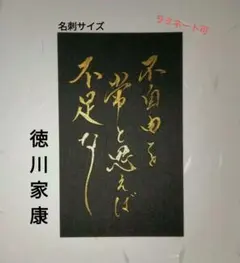 名刺サイズ
ラミネート可
不自由を
常と思えば
不足なし
徳川家康